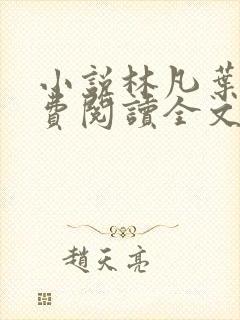 小説林凡葉
費閱讀全文
趙天亮